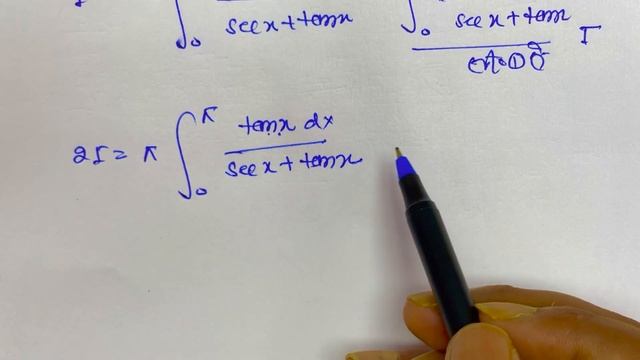 ∫₀ sec x + tan x   ∫₀ sec x + tan x   I
2I = π ∫₀^π tan x dx / sec x + tan x